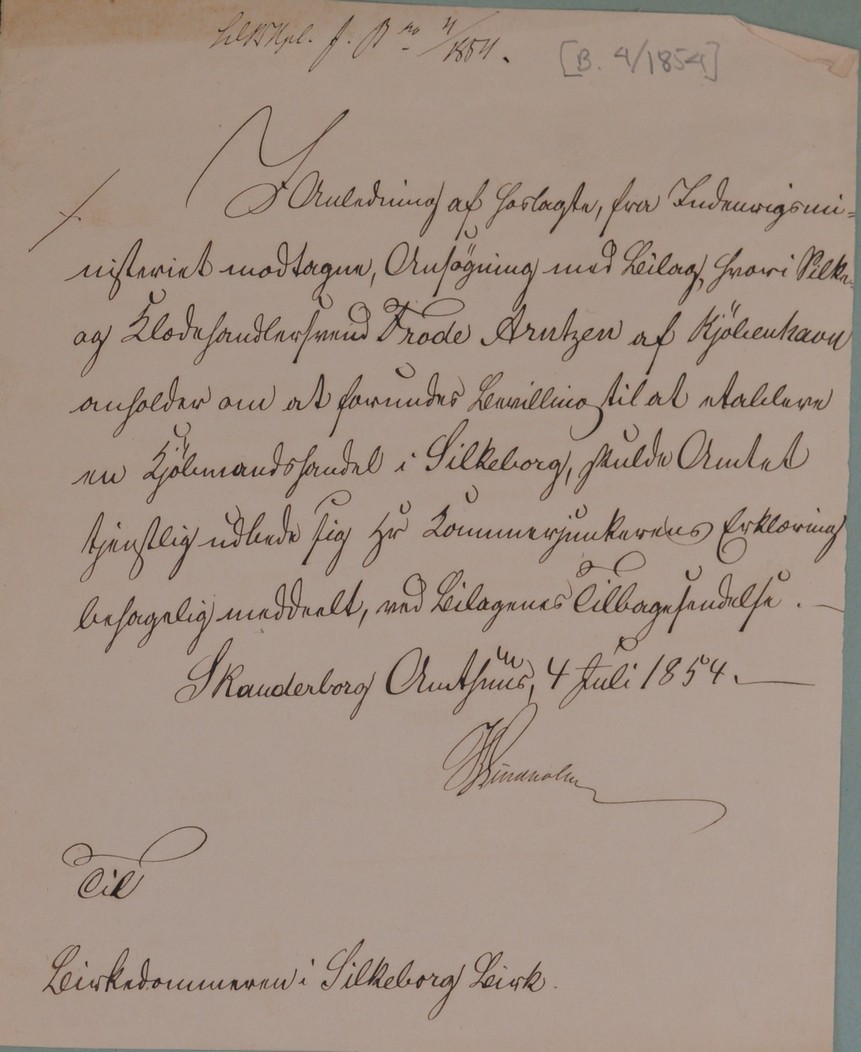 J. B. No 4/1854.
[B. 4/1854]
I Anledning af hoslagte, fra Indenrigsmi-
nisteriet modtagne, Ansøgning med Bilag, hvori Silke-
og Klædehandlersvend Frode Arntzen af Kjöbenhavn
anholder om at forundes Bevilling til at etablere
en Kjöbmandshandel i Silkeborg, skulde Amtet
tjenstlig udbede sig Hr Kammerjunkerens Erklæring
behagelig meddeelt, ved Bilagenes Tilbagesendelse.
Skanderborg Amthuus, 4 Juli 1854.
Til
Birkedommeren i Silkeborg Birk.